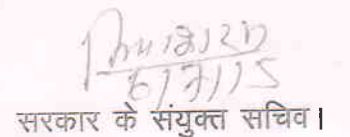 6/7/15
सरकार के संयुक्त सचिव।